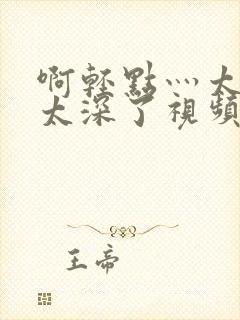 啊輕點灬太
太深了視頻
王帝